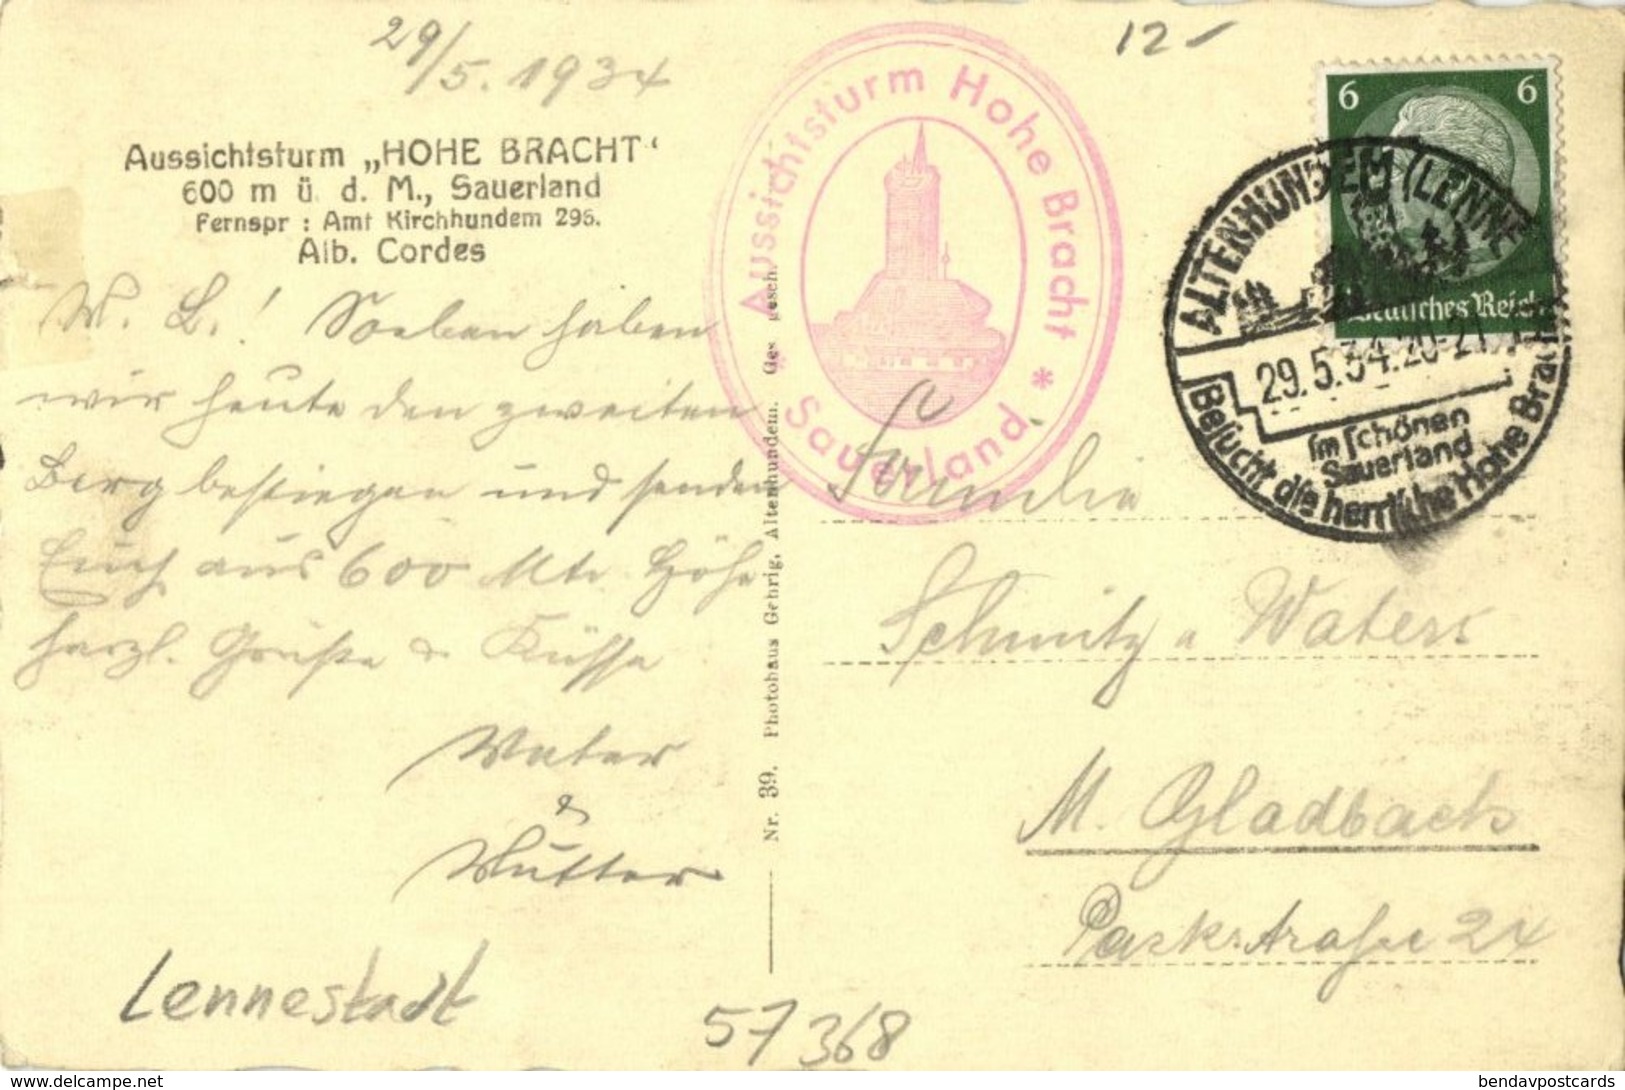 29/5. 1934
12-
Aussichtsturm „HOHE BRACHT“
600 m ü. d. M., Sauerland
Fernspr : Amt Kirchhundem 296.
Alb. Cordes
W. L.! Soeben haben
wir heute den zweiten
Berg bestiegen und senden
Euch aus 600 Mtr. Höhe
herzl. Grüße & Küsse
Vater
&
Mutter
Lennestadt
57368
Nr. 39. Photohaus Gehrig, Altenhundem. Ges. gesch.
Aussichtsturm Hohe Bracht
* Sauerland *
6 6
Deutsches Reich
ALTENHUNDEM (LENNE
29.5.34.20-21
Im schönen
Sauerland
Besucht die herrliche Hohe Bracht
Familie
Schmitz u Waters
M. Gladbach
Parkstraße 24
delcampe.net
bendavpostcards